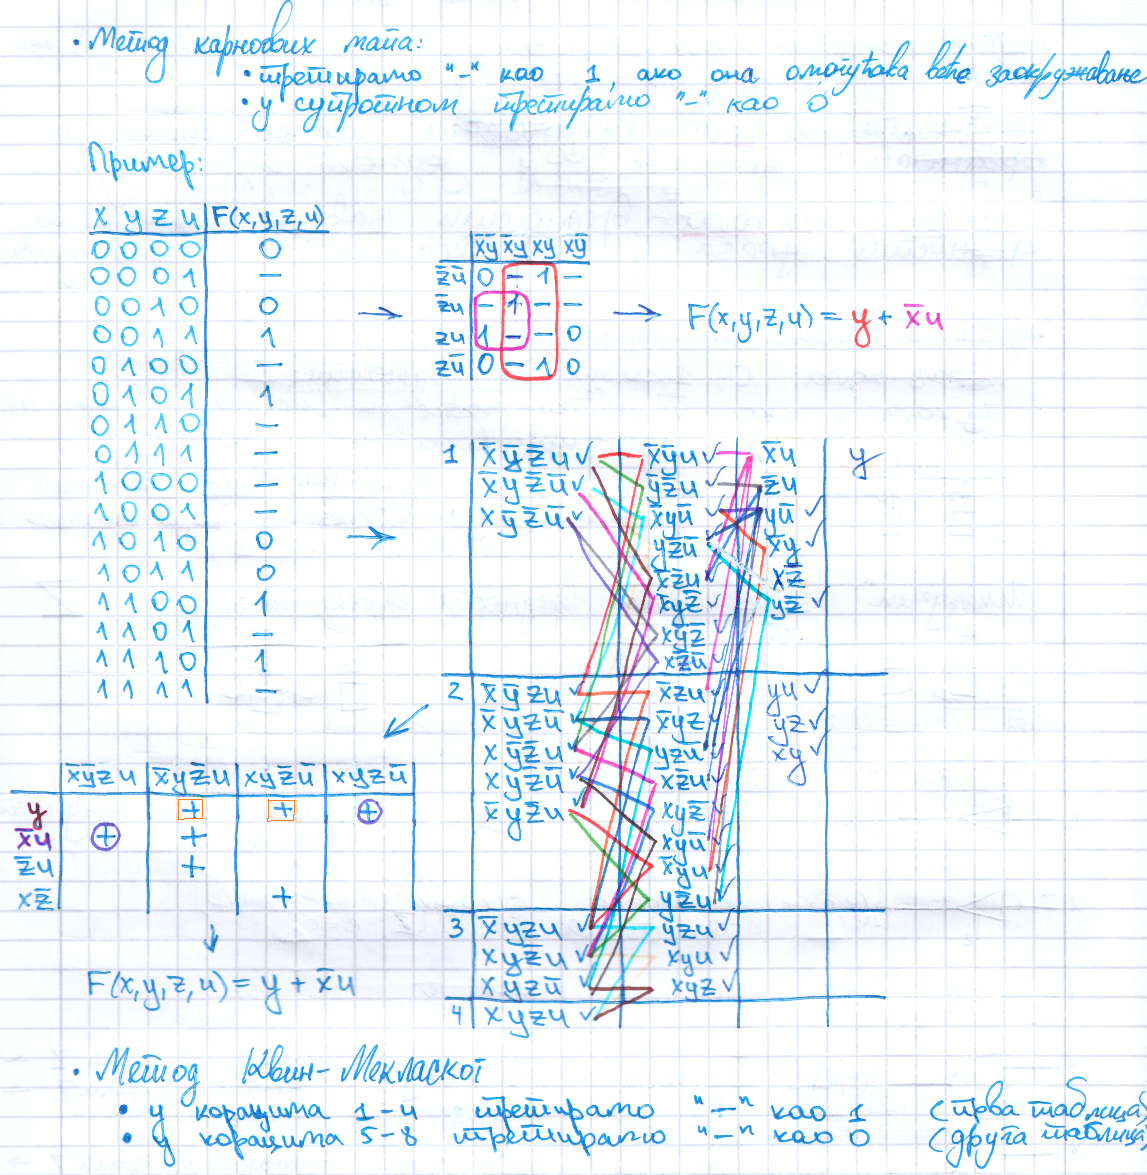 • Метод карнових мапа:
• третирамо "–" као 1, ако она омогућава веће заокруживање
• у супротном третирамо "–" као 0
Пример:
x y z u | F(x,y,z,u)
0 0 0 0 | 0
0 0 0 1 | –
0 0 1 0 | 0
0 0 1 1 | 1
0 1 0 0 | –
0 1 0 1 | 1
0 1 1 0 | –
0 1 1 1 | –
1 0 0 0 | –
1 0 0 1 | –
1 0 1 0 | 0
1 0 1 1 | 0
1 1 0 0 | 1
1 1 0 1 | –
1 1 1 0 | 1
1 1 1 1 | –
x̄ȳ x̄y xy xȳ
z̄ū 0 – 1 –
z̄u – 1 – –
zu 1 – – 0
zū 0 – 1 0
→ F(x,y,z,u) = y + x̄u
1 | x̄ȳz̄u ✓ | x̄ȳu ✓ | x̄u | y
x̄yz̄ū ✓ | ȳz̄u ✓ | z̄u
xȳz̄ū ✓ | x̄yū ✓ | yū ✓
yz̄ū ✓ | x̄y ✓
x̄z̄u ✓ | xz̄
x̄yz̄ ✓ | yz̄ ✓
xȳz̄ ✓
xz̄ū ✓
2 | x̄ȳzu ✓ | x̄zu ✓ | yu ✓
x̄yzū ✓ | x̄yz ✓ | yz ✓
xȳz̄u ✓ | yzū ✓ | xy ✓
xyz̄ū ✓ | xz̄u ✓
x̄yz̄u ✓ | xyz̄ ✓
xyū ✓
x̄yu ✓
yz̄u ✓
3 | x̄yzu ✓ | yzu ✓
xyz̄u ✓ | xyu ✓
xyzū ✓ | xyz ✓
4 | xyzu ✓
x̄ȳzu | x̄yz̄u | xyz̄ū | xyzū
y | | + | + | +
x̄u | + | + | |
z̄u | | + | |
xz̄ | | | + |
F(x,y,z,u) = y + x̄u
• Метод Квин-Мекласког
• у корацима 1-4 третирамо "–" као 1 (прва таблица)
• у корацима 5-8 третирамо "–" као 0 (друга таблица)